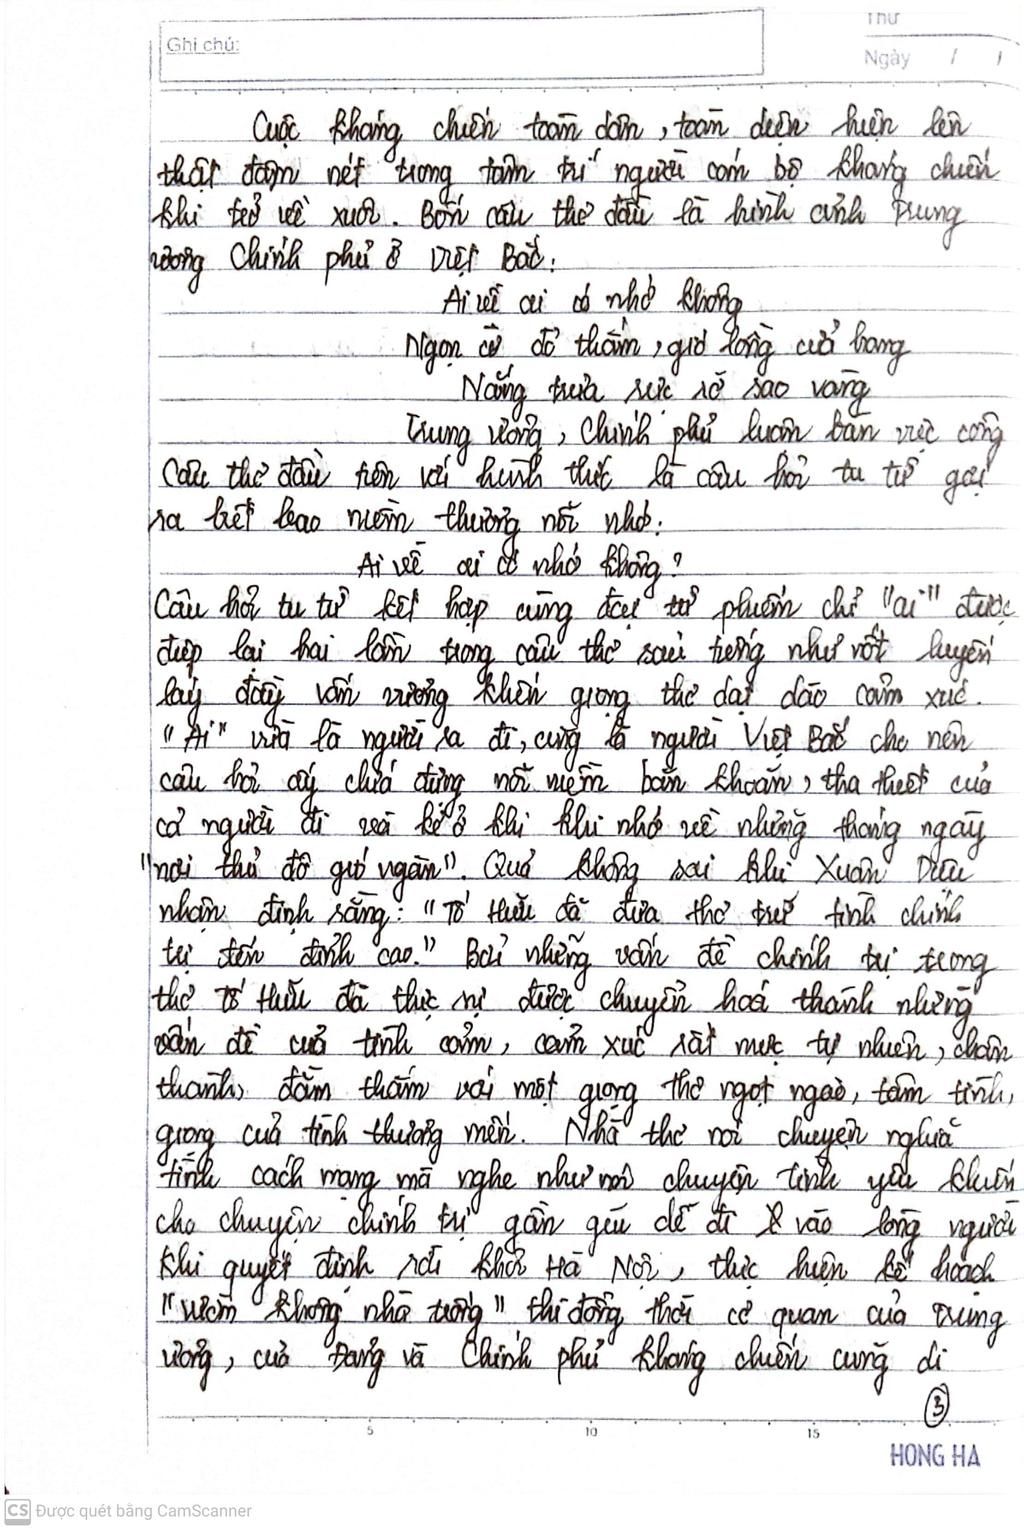 Thứ
Ghi chú:
Ngày / /
Cuộc kháng chiến toàn dân, toàn diện hiện lên
thật đậm nét trong tâm trí người cán bộ kháng chiến
khi trở về xuôi. Bốn câu thơ đầu là hình ảnh Trung
ương Chính phủ ở Việt Bắc:
Ai về ai có nhớ không
Ngọn cờ đỏ thắm, gió lồng cửa hang
Nắng trưa rực rỡ sao vàng
Trung ương, Chính phủ luôn bàn việc công
Câu thơ đầu tiên với hình thức là câu hỏi tu từ gợi
ra biết bao niềm thương nỗi nhớ:
Ai về ai có nhớ không?
Câu hỏi tu từ kết hợp cùng đại từ phiếm chỉ "ai" được
điệp lại hai lần trong câu thơ sáu tiếng như nốt luyến
láy đầy vấn vương khiến giọng thơ dạt dào cảm xúc.
"Ai" vừa là người ra đi, cũng là người Việt Bắc cho nên
câu hỏi ấy chứa đựng nỗi niềm băn khoăn, tha thiết của
cả người đi và kẻ ở khi khi nhớ về những tháng ngày
"nơi thủ đô gió ngàn". Quả không sai khi Xuân Diệu
nhận định rằng: "Tố Hữu đã đưa thơ trữ tình chính
trị đến đỉnh cao." Bởi những vấn đề chính trị trong
thơ Tố Hữu đã thực sự được chuyển hoá thành những
vấn đề của tình cảm, cảm xúc rất mực tự nhiên, chân
thành, đằm thắm với một giọng thơ ngọt ngào, tâm tình,
giọng của tình thương mến. Nhà thơ nói chuyện nghĩa
tình cách mạng mà nghe như nói chuyện tình yêu khiến
cho chuyện chính trị gần gũi dễ đi vào lòng người
Khi quyết định rời khỏi Hà Nội, thực hiện kế hoạch
"vườn không nhà trống" thì đồng thời cơ quan của Trung
ương, của Đảng và Chính phủ kháng chiến cũng di
3
5 10 15
HONG HA
CS Được quét bằng CamScanner